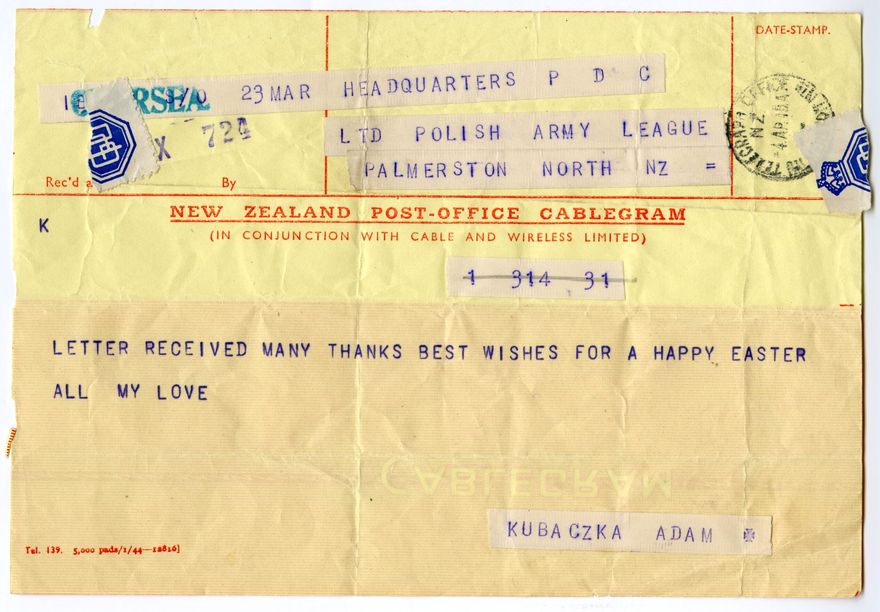 DATE-STAMP.
23 MAR HEADQUARTERS P D C
X 724
LTD POLISH ARMY LEAGUE
PALMERSTON NORTH NZ =
TELEGRAPH OFFICE
NZ
Rec'd a
By
NEW ZEALAND POST-OFFICE CABLEGRAM
(IN CONJUNCTION WITH CABLE AND WIRELESS LIMITED)
K
1 314 31
LETTER RECEIVED MANY THANKS BEST WISHES FOR A HAPPY EASTER
ALL MY LOVE
CABLEGRAM
KUBACZKA ADAM
Tel. 139. 5,000 pads/1/44—12816]